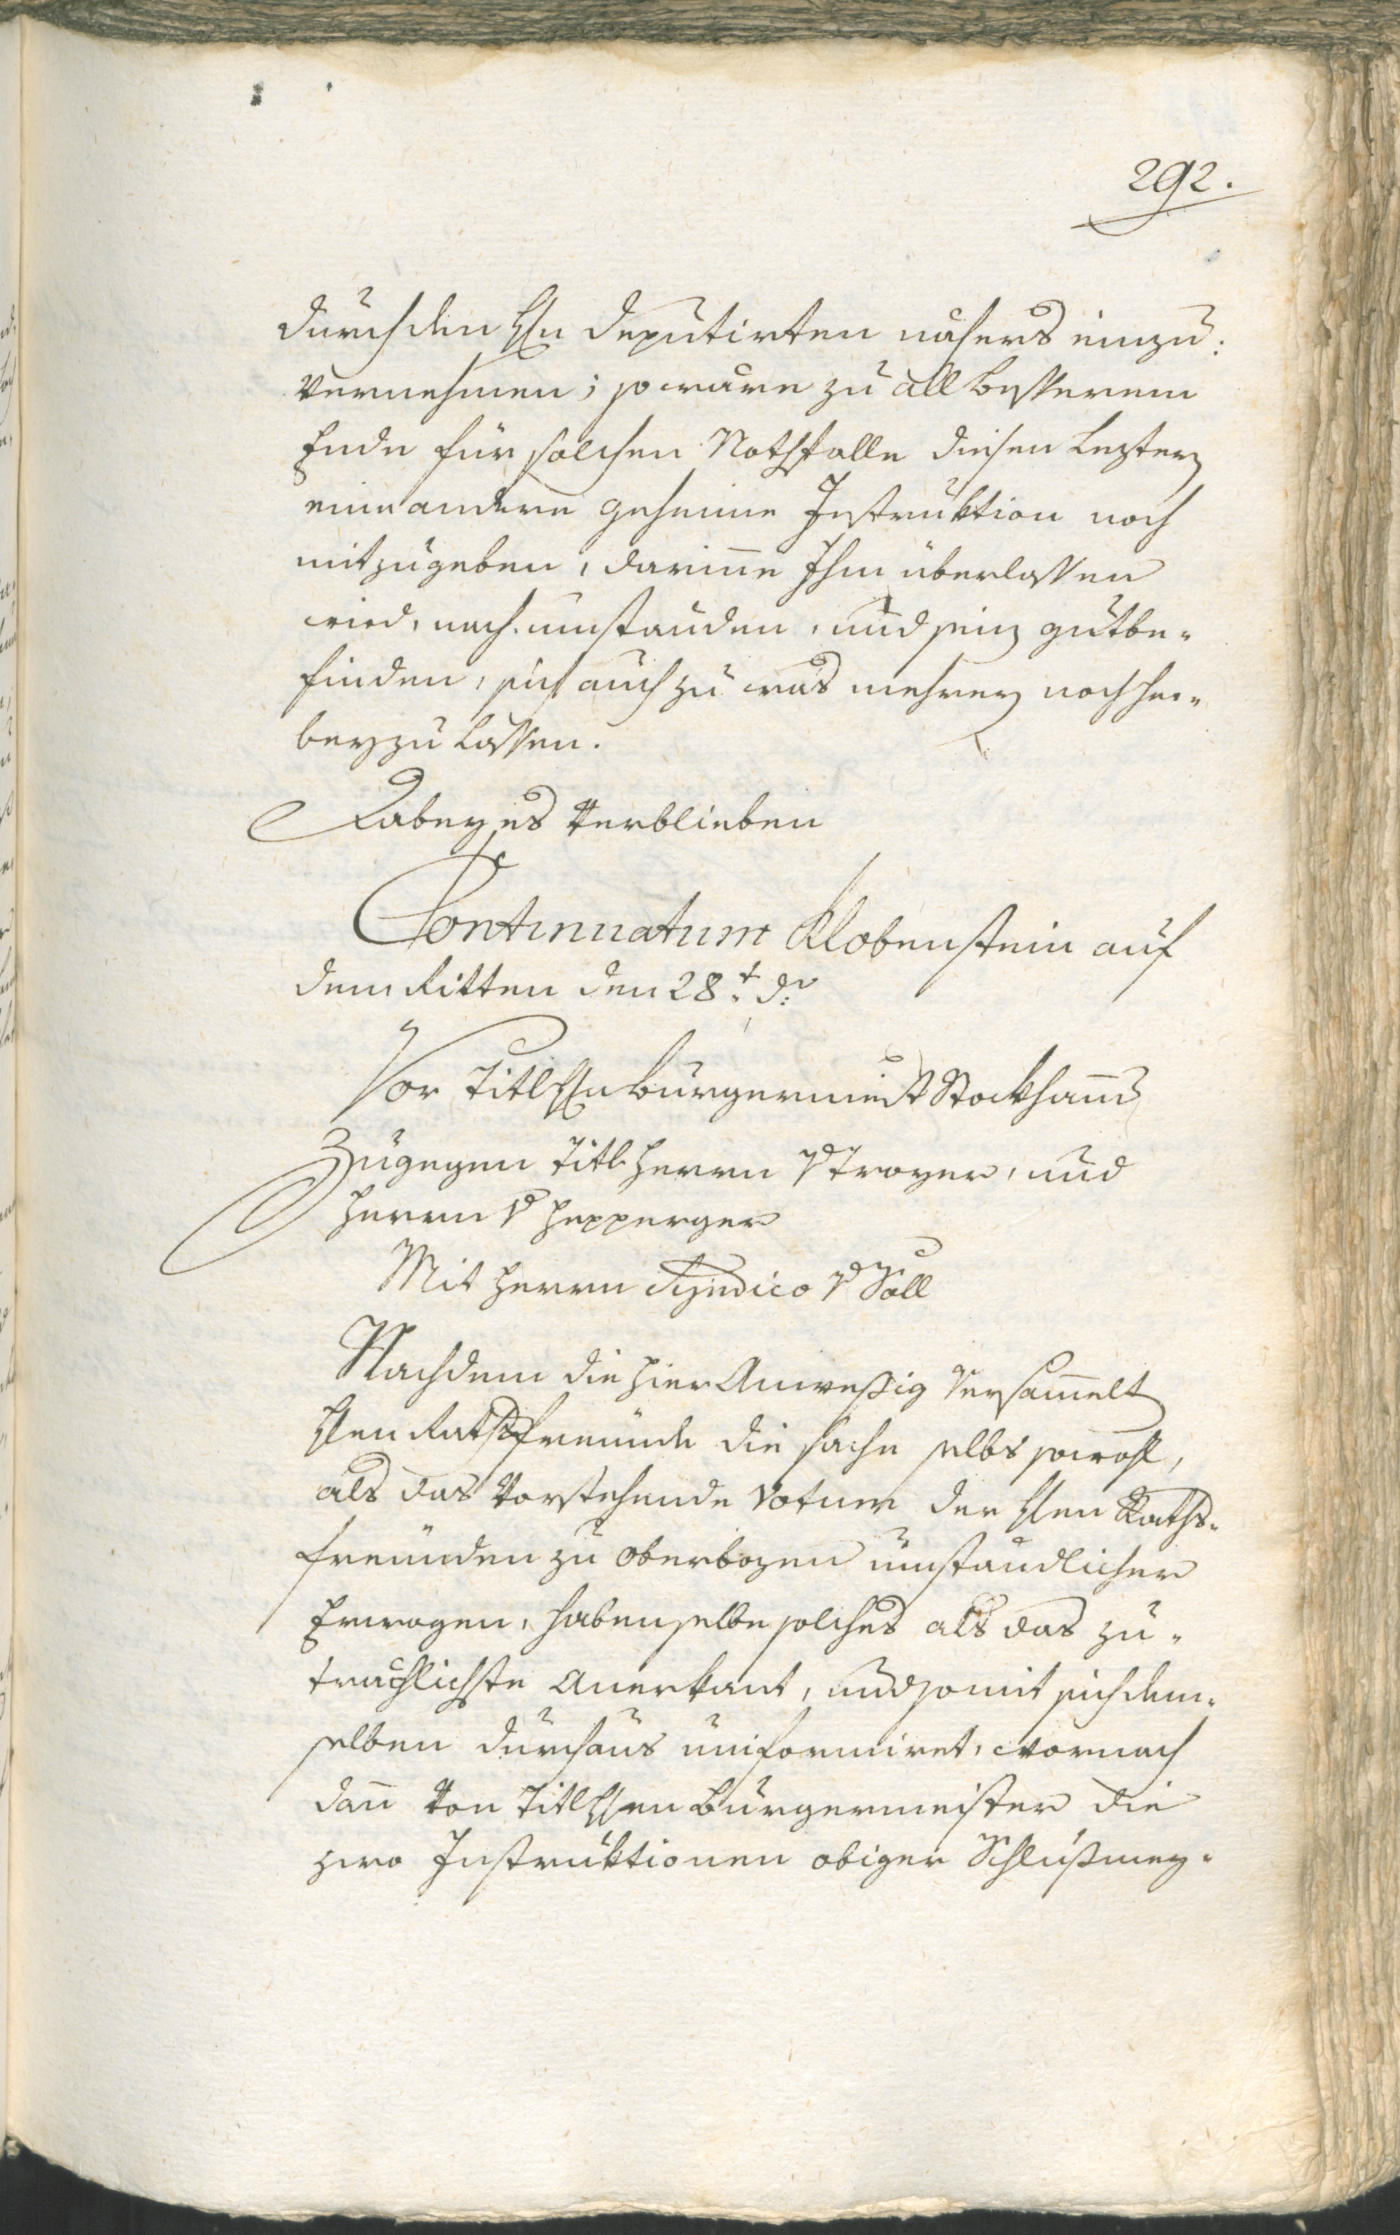 292.
durch den Hn deputirten nähers einzu:
vernehmen; so wäre zu all besserem
Ende für solchen Nothfalle diesen Leztern
eine andere geheime Instruktion noch
mitzugeben, darinne Ihm überlassen
wird, nach umständen, und sein gutbe-
finden, sich auch zu was mehrern noch her-
beyzu lassen.
Dabey es verblieben
Continuatum Klobenstein auf
dem Ritten den 28.t d.o
Vor Titl Hn Burgermeist Stockham̄er
Zugegen Titl Herrn v Troyer, und
Herrn v Hepperger
Mit Herrn Syndico v Söll
Nachdem die hier Anwesig versam̄elt
Hen Rathsfreunde die sache selbs sowohl,
als das vorstehende Votum der Hen Raths-
freunden zu oberbozen umständlicher
Erwogen, haben selbe solches als das zu-
träglichste Anerkant, und somit sich dem-
selben durchaus uniformiret, wornach
dan̄ von Titl Hen Burgermeister die
zwo Instruktionen obiger Schlußmey-